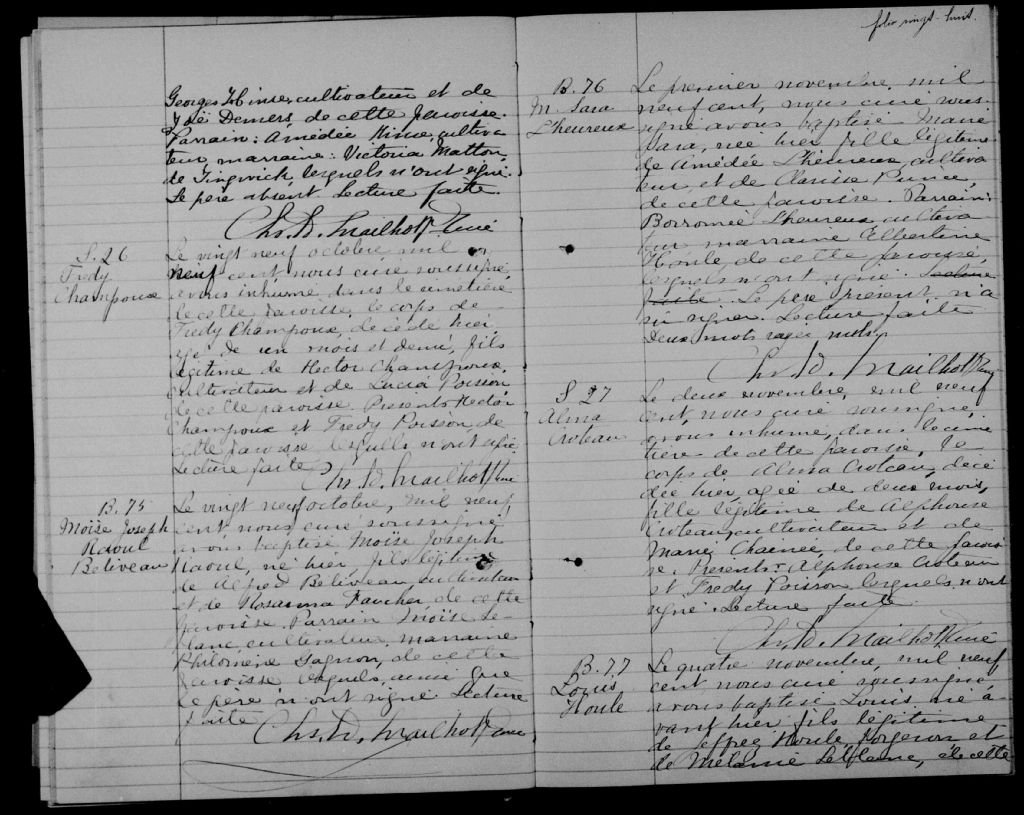 Georges Hinse, cultivateur et de
Demers de cette paroisse.
Parrain: Amédée Hinse, cultiva
teur, marraine: Victoria Matton,
de Tingwick lesquels n'ont signé.
Le père absent. Lecture faite.
Chs. D. Mailhot Ptre Curé
S. 26
Fredy
Champoux
Le vingt neuf octobre, mil
neuf cent, nous curé soussigné,
avons inhumé dans le cimetière
de cette paroisse, le corps de
Fredy Champoux, décédé hier,
agé de un mois et demi, fils
légitime de Hector Champoux,
cultivateur et de Lucia Poisson
de cette paroisse. Présents Hector
Champoux et Fredy Poisson, de
cette paroisse lesquels n'ont signé.
Lecture faite
Chs. D. Mailhot Ptre
B. 75
Moïse Joseph
Raoul
Beliveau
Le vingt neuf octobre, mil neuf
cent nous curé soussigné,
avons baptisé Moïse Joseph
Raoul, né hier, fils légitime
de Alfred Beliveau, cultivateur
et de Rosanna Faucher de cette
paroisse. Parrain Moïse Le-
blanc, cultivateur, marraine
Philomène Gagnon, de cette
paroisse lesquels, ainsi que
le père n'ont signé. Lecture
faite
Chs. D. Mailhot Ptre
folio vingt-huit.
B. 76
M. Sara
L'heureux
Le premier novembre, mil
neuf cent, nous curé sous-
signé avons baptisé Marie
Sara, née hier fille légitime
de Amédée L'heureux, cultiva
teur, et de Clarisse
de cette paroisse. Parrain:
Borromée L'heureux cultiva
teur marraine Elbertine
Houle de cette paroisse,
lesquels n'ont signé. Lecture
faite. Le père présent n'a
su signer. Lecture faite
Deux mots rayés nuls.
Chs. D. Mailhot Ptre
S 27
Alma
Croteau
Le deux novembre, mil neuf
cent, nous curé soussigné,
avons inhumé, dans le cime
tière de cette paroisse, le
corps de Alma Croteau, décé
dée hier, agée de deux mois,
fille légitime de Alphonse
Croteau, cultivateur et de
Marie Chainée, de cette parois
se. Présents: Alphonse Croteau
et Fredy Poisson lesquels n'ont
signé. Lecture faite
Chs. D. Mailhot Ptre Curé
B. 77
Louis
Houle
Le quatre novembre, mil neuf
cent nous curé soussigné
avons baptisé Louis né a-
vant hier fils légitime
de Jeffrey Houle, forgeron et
de Mélanie, de cette